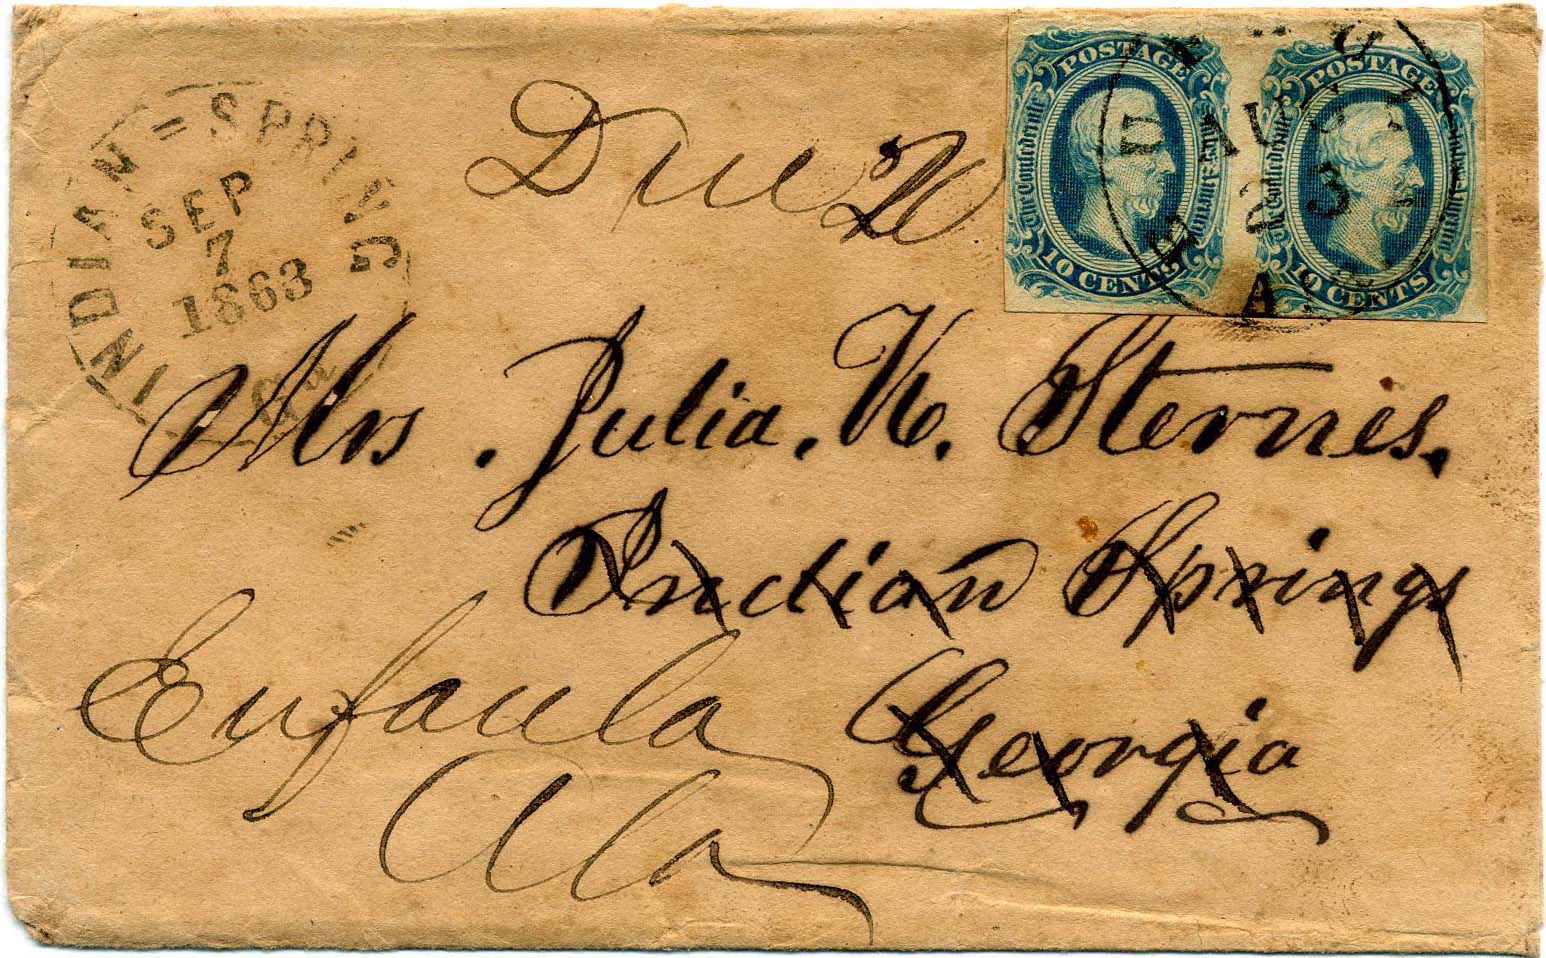 INDIAN = SPRINGS
SEP
7
1863
Ga
Due
POSTAGE
The Confederate States of America
10 CENTS
POSTAGE
The Confederate States of America
10 CENTS
AUG
23
Mrs. Julia. K. Sternes.
Indian Springs
Georgia
Eufaula
Ala